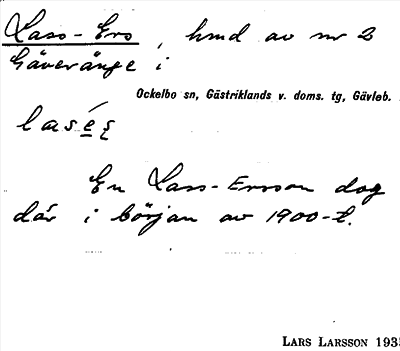 Lass-Ers, hmd av nr 2
Gäveränge i
Ockelbo sn, Gästriklands v. doms. tg, Gävleb.
En Lass-Ersson dog
där i början av 1900-t.
LARS LARSSON 1935